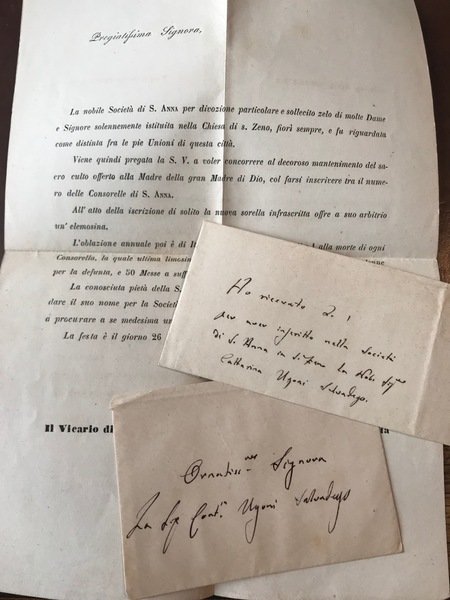 Pregiatissima Signora,
La nobile Società di S. ANNA per divozione particolare e sollecito zelo di molte Dame
e Signore solennemente istituita nella Chiesa di s. Zeno, fiorì sempre, e fu riguardata
come distinta fra le pie Unioni di questa città.
Viene quindi pregata la S. V. a voler concorrere al decoroso mantenimento del sa-
cro culto offerto alla Madre della gran Madre di Dio, col farsi inscrivere tra il nume-
ro delle Consorelle di S. ANNA.
All' atto della iscrizione di solito la nuova sorella infrascritta offre a suo arbitrio
un' elemosina.
L'oblazione annuale poi è di alla morte di ogni
Consorella, la quale ultima limosin
per la defunta, e 50 Messe a suff
La conosciuta pietà della S.
dare il suo nome per la Societ
a procurare a se medesima un
La festa è il giorno 26
Il Vicario di
Ho ricevuto 2. 1
per aver inscritto nella Società
di S. Anna in S. Zeno la Nob. Sig.
Catterina Ugoni Salvadego.
Ornatiss. Signora
La Sig. Cont. Ugoni Salvadego